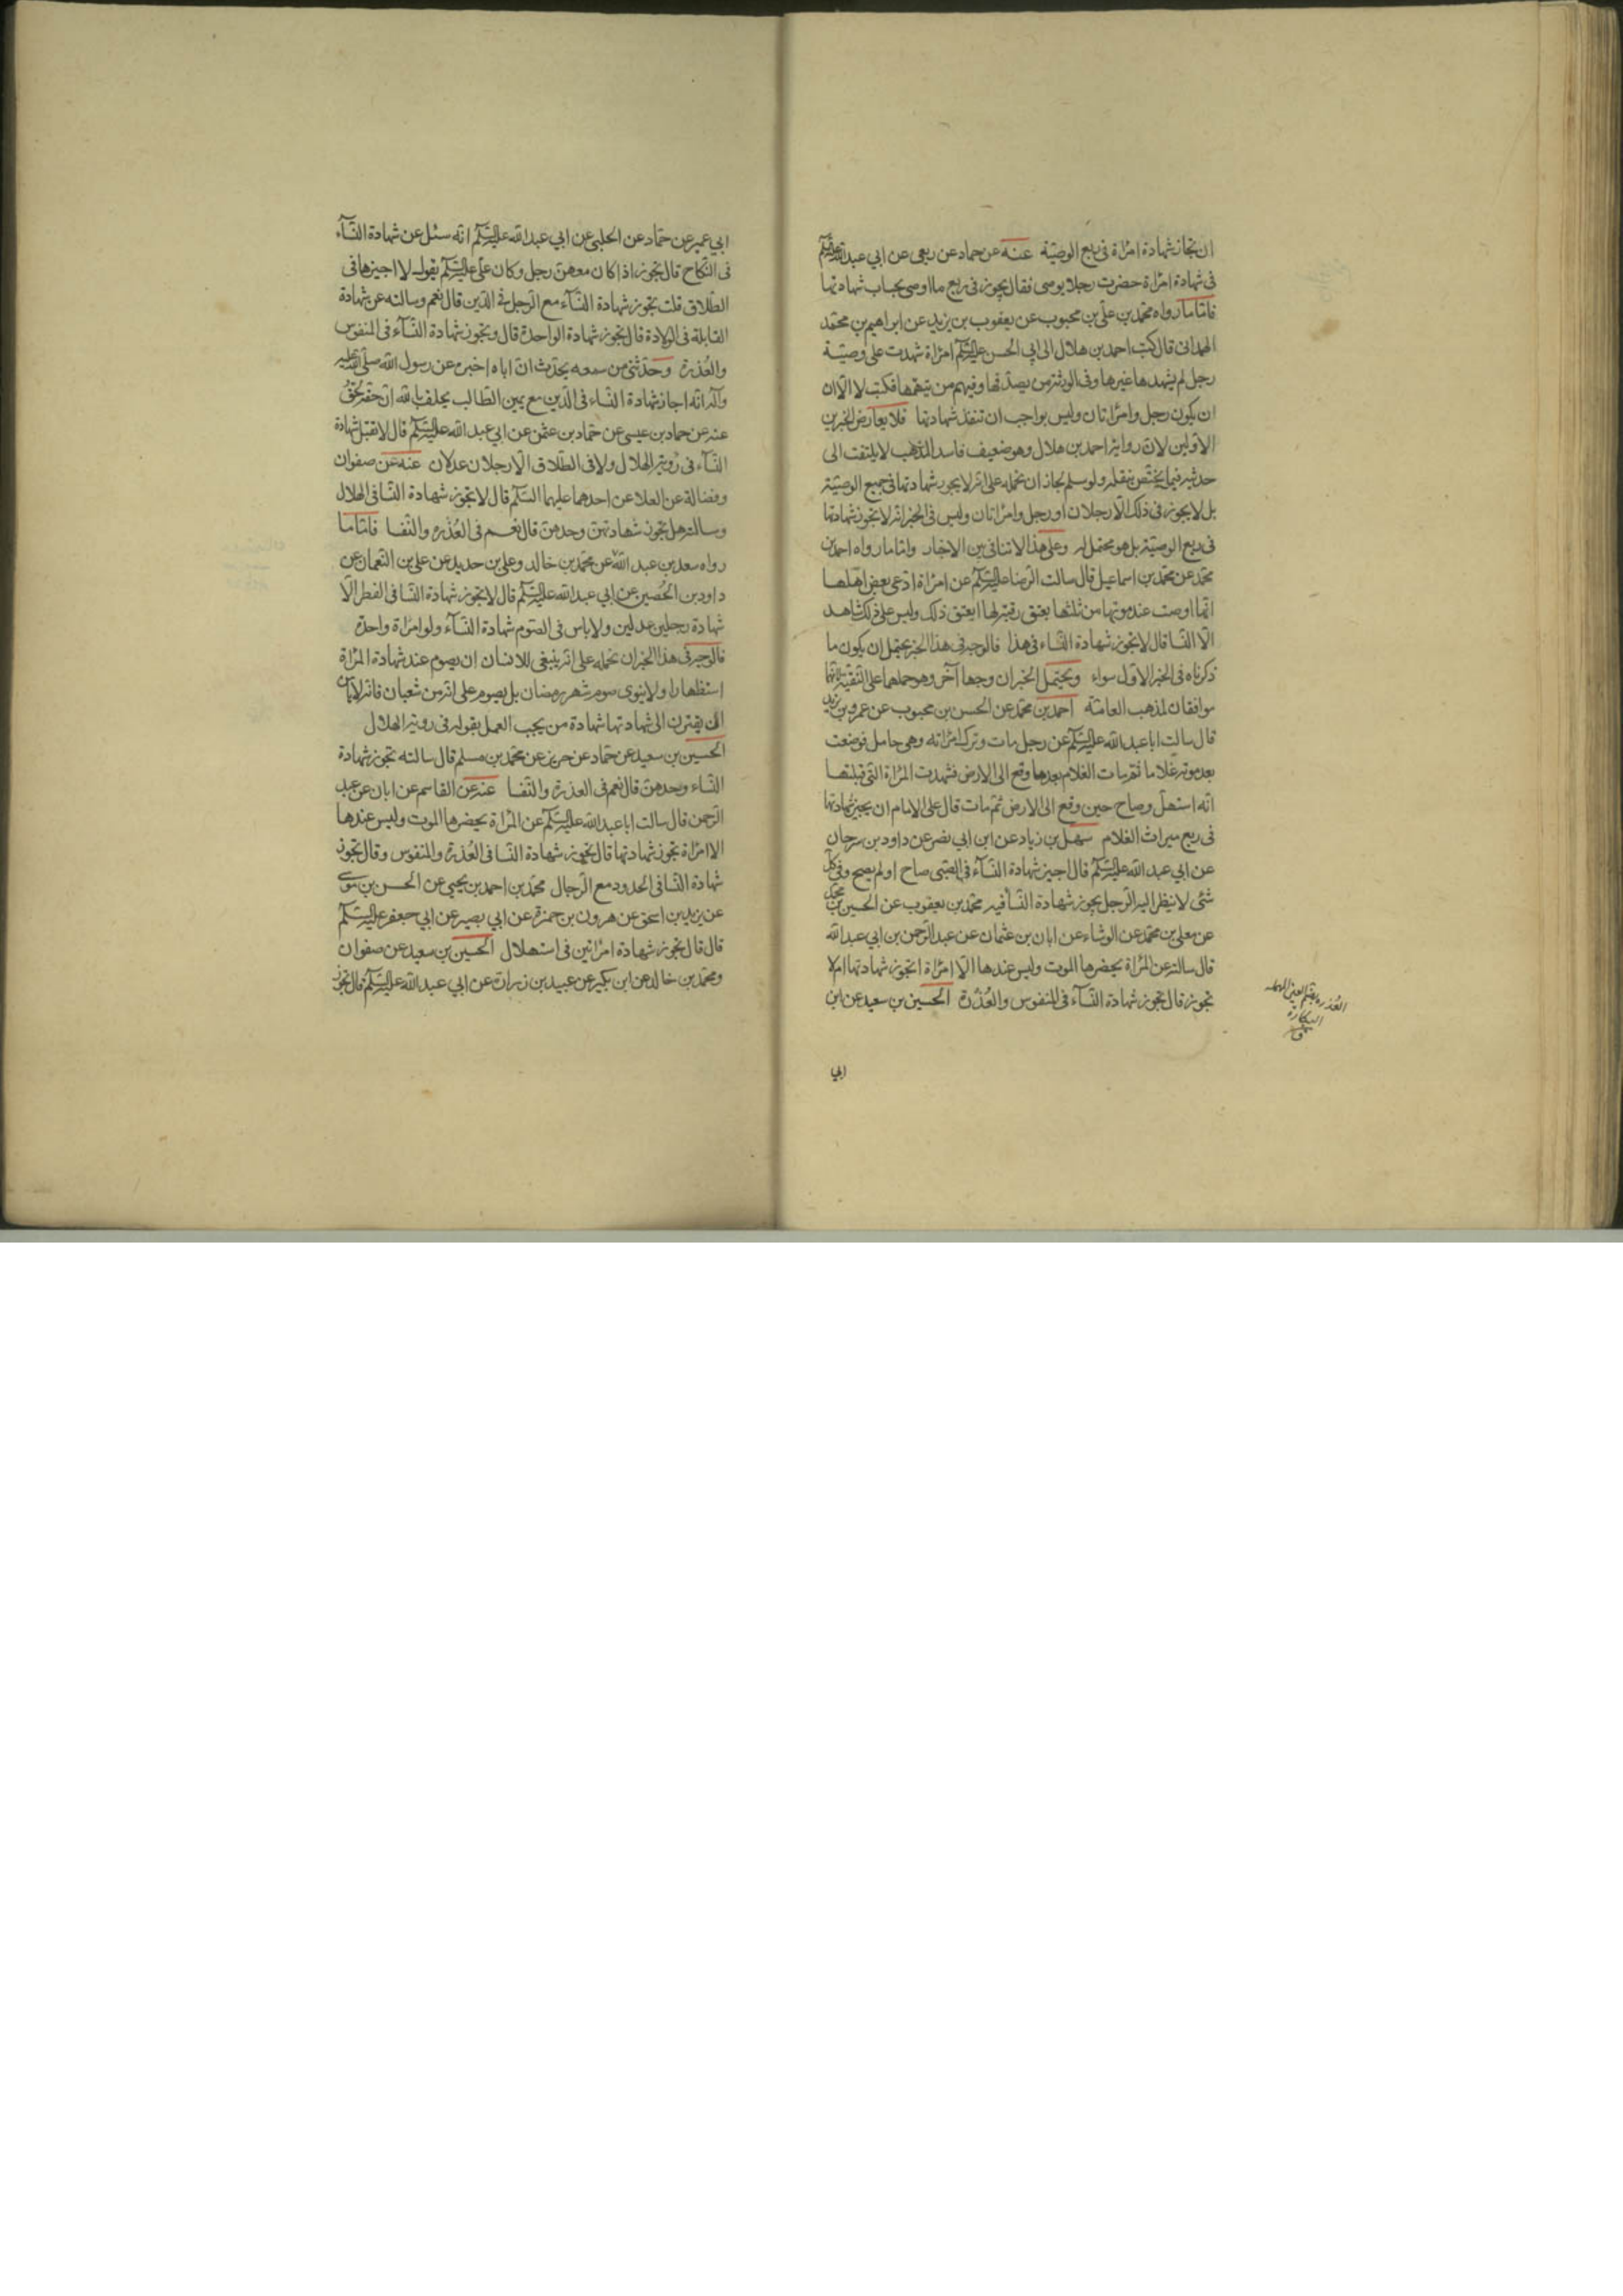 ان تجاز شهادة امرأة في ربع الوصيّة عنه عن حماد عن ربعي عن ابي عبد الله عليه السلم
في شهادة امرأة حضرت رجلا يوصى فقال يجوز في ربع ما اوصى بحساب شهادتها
فامّا ما رواه محمد بن علي بن محبوب عن يعقوب بن يزيد عن ابراهيم بن محمد
الهمداني قال كتب احمد بن هلال الى ابي الحسن عليه السلم امرأة شهدت على وصيّة
رجل لم يشهدها غيرها وفي الورثة من يصدّقها وفيهم من يتهمها فكتب لا الّا ان
ان يكون رجل وامرأتان وليس بواجب ان تنفذ شهادتها فلا يعارض الخبرين
الاوّلين لانّ روايه احمد بن هلال وهو ضعيف فاسد المذهب لا يلتفت الى
حديثه فيما يختصّ بنقله ولو سلم لجاز ان نحمله على انّه لا يجوز شهادتها في جميع الوصيّة
بل لا يجوز في ذلك الّا رجلان او رجل وامرأتان وليس في الخبر انّه لا يجوز شهادتها
في ربع الوصيّة بل هو محتمل له وعلى هذا لا تنافي بين الاخبار وامّا ما رواه احمد بن
محمّد عن محمّد بن اسماعيل قال سالت الرّضا عليه السلم عن امرأة ادّعى بعض اهلها
انّها اوصت عند موتها من ثلثها بعتق رقبة لها ايعتق ذلك وليس على ذلك شاهد
الّا النّسا قال لا تجوز شهادة النّساء في هذا فالوجه في هذا الخبر يحتمل ان يكون ما
ذكرناه في الخبر الاوّل سواء ويحتمل الخبران وجها آخر وهو حملهما على التقيّة لانّهما
موافقان لمذهب العامّة احمد بن محمّد عن الحسن بن محبوب عن عمرو بن يزيد
قال سالت ابا عبد الله عليه السلم عن رجل مات وترك امرأته وهي حامل فوضعت
بعد موته غلاما ثم مات الغلام بعدها وقع الى الارض فشهدت المرأة التي قبلتها
انّه استهلّ وصاح حين وقع الى الارض ثم مات قال على الامام ان يجيز شهادتها
في ربع ميراث الغلام سهل بن زياد عن ابن ابي نصر عن داود بن سرحان
عن ابي عبد الله عليه السلم قال اجيز شهادة النّسآء في الصّبى صاح او لم يصح وفي كلّ
شئ لا ينظر اليه الرّجل يجوز شهادة النّسآ فيه محمّد بن يعقوب عن الحسين بن محمّد
عن معلى بن محمّد عن الوشاء عن ابان بن عثمان عن عبد الرّحمن بن ابي عبد الله
قال سالته عن المرأة يحضرها الموت وليس عندها الّا امرأة اتجوز شهادتها ام لا
تجوز قال تجوز شهادة النّسآء في المنفوس والعُذْرة الحسين بن سعيد عن ابن
العذرة بضم العين المهملة
البكارة
ابي
ابي عمير عن حمّاد عن الحلبي عن ابي عبد الله عليه السلم انه سئل عن شهادة النّسآء
في النّكاح قال تجوز اذا كان معهنّ رجل وكان علىّ عليه السلم يقول لا اجيزها في
الطّلاق قلت تجوز شهادة النّسآء مع الرّجل في الدّين قال نعم وسالته عن شهادة
القابلة في الولادة قال تجوز شهادة الواحدة قال ويجوز شهادة النّسآء في المنفوس
والعُذرة وحدّثني من سمعه يحدّث انّ اباه اخبره عن رسول الله صلّى الله عليه
وآله انّه اجاز شهادة النّساء في الدّين مع يمين الطّالب يحلف بالله انّ حقّه لحقّ
عنه عن حماد بن عيسى عن حمّاد بن عثمن عن ابي عبد الله عليه السلم قال لا تقبل شهادة
النّسآء في رُؤية الهلال ولا في الطّلاق الّا رجلان عدلان عنه عن صفوان
وفضالة عن العلا عن احدهما عليهما السّلم قال لا تجوز شهادة النّسا في الهلال
وسالته هل تجوز شهادتهنّ وحدهنّ قال نعم في العُذْرة والنّفسا فامّا ما
رواه سعد بن عبد الله عن محمّد بن خالد وعلي بن حديد عن علي بن النّعمان عن
داود بن الحُصين عن ابي عبد الله عليه السلم قال لا تجوز شهادة النّسا في الفطر الّا
شهادة رجلين عدلين ولا باس في الصّوم شهادة النّسآء ولو امرأة واحدة
فالوجه في هذا الخبر ان نحمله على انّه ينبغي للانسان ان يصوم عند شهادة المرأة
استظهارا ولا ينوى صوم شهر رمضان بل يصوم على انّه من شعبان فانّه لا يامن
ان يقترن الى شهادتها شهادة من يجب العمل بقوله في روية الهلال
الحسين بن سعيد عن حمّاد عن حريز عن محمّد بن مسلم قال سالته تجوز شهادة
النّساء وحدهنّ قال نعم في العذرة والنّفسا عنه عن القاسم عن ابان عن عبد
الرّحمن قال سالت ابا عبد الله عليه السلم عن المرأة يحضرها الموت وليس عندها
الا امرأة تجوز شهادتها قال تجوز شهادة النّسا في العُذرة والمنفوس وقال تجوز
شهادة النّسا في الحدود مع الرّجال محمّد بن احمد بن يحيى عن الحسن بن موسى
عن يزيد بن اسحق عن هرون بن حمزة عن ابي بصير عن ابي جعفر عليه السلم
قال قال تجوز شهادة امرأتين في استهلال الحسين بن سعيد عن صفوان
ومحمّد بن خالد عن ابن بكير عن عبيد بن زرارة عن ابي عبد الله عليه السلم قال تجوز